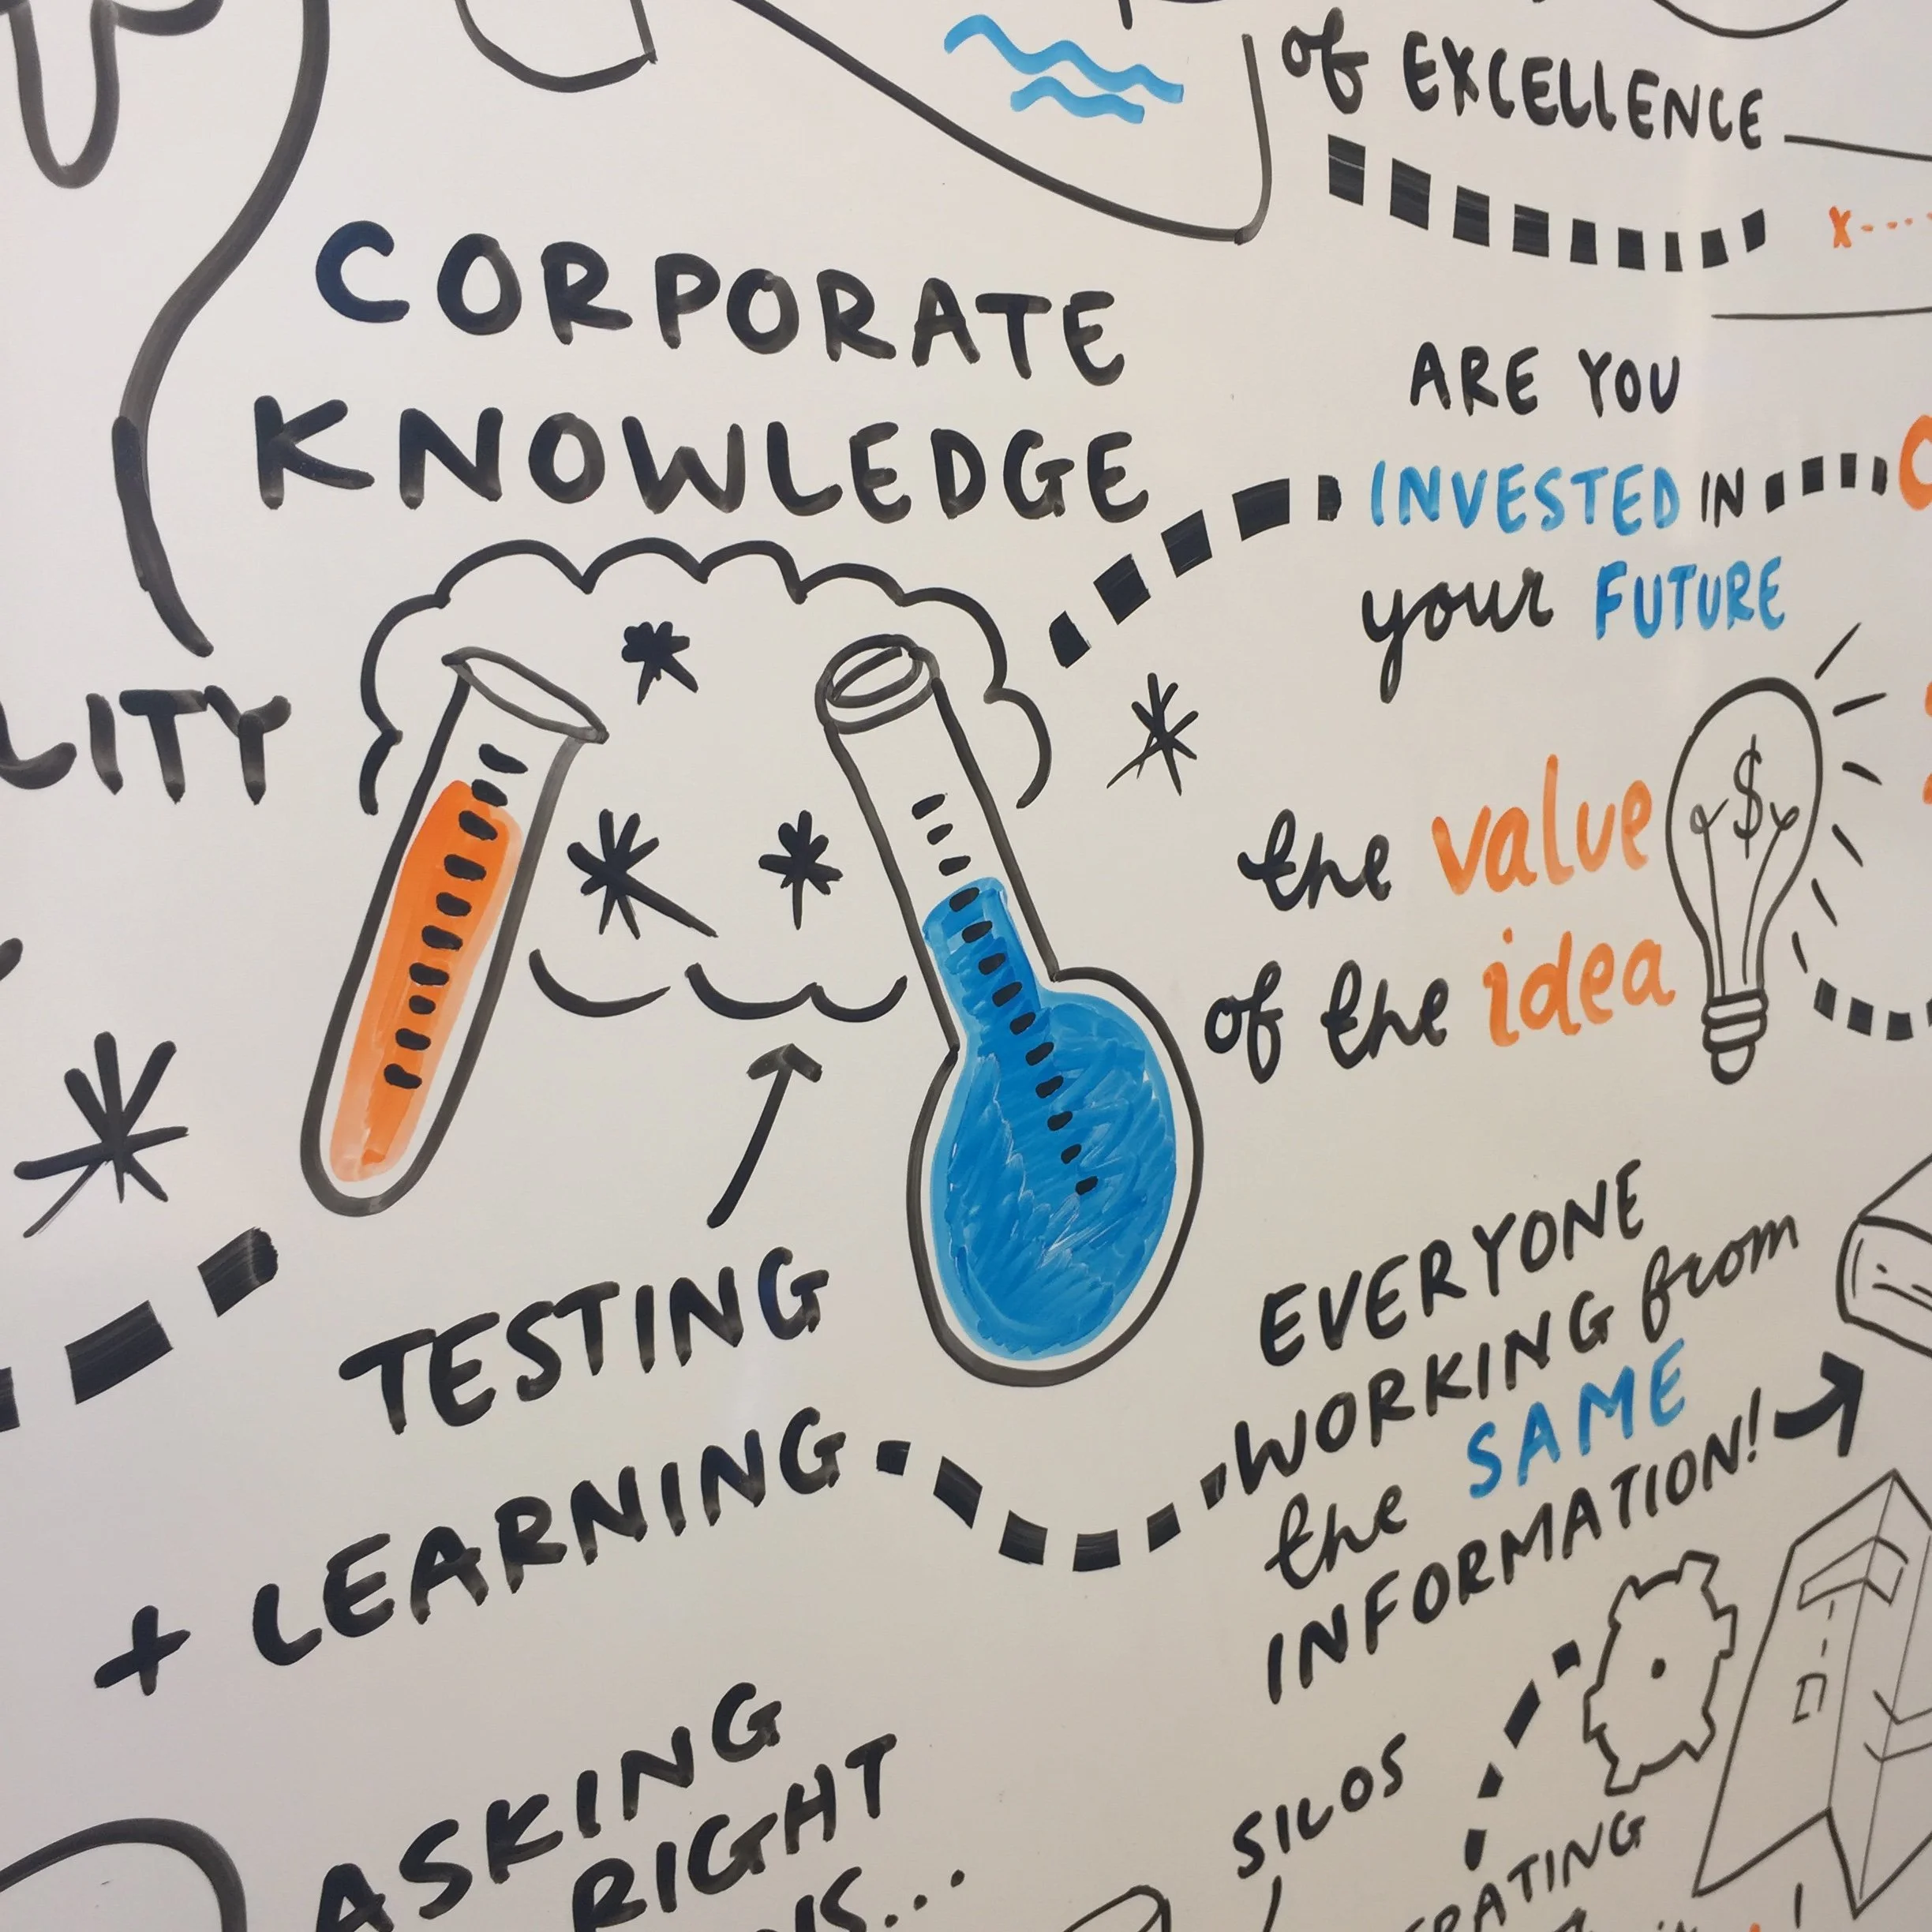 of EXCELLENCE
CORPORATE
KNOWLEDGE
ARE YOU
INVESTED IN
your FUTURE
LITY
the value
$
of the idea
EVERYONE
WORKING from
the SAME
INFORMATION!
TESTING
+ LEARNING
ASKING
RIGHT
SILOS
RATING